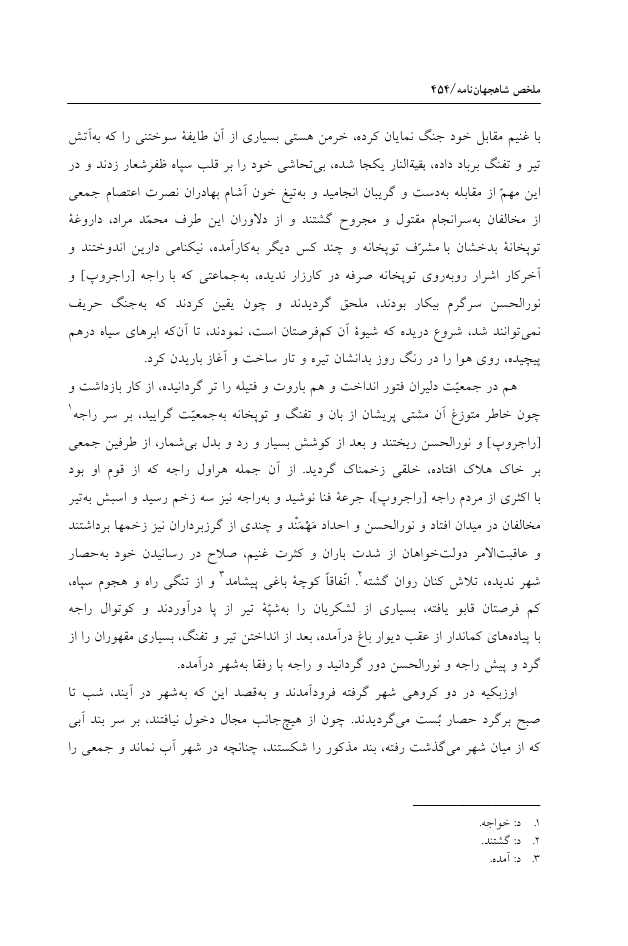 ملخص شاهجهان‌نامه/۴۵۴
با غنیم مقابل خود جنگ نمایان کرده، خرمن هستی بسیاری از آن طایفهٔ سوختنی را که به‌آتش
تیر و تفنگ برباد داده، بقیةالنار یکجا شده، بی‌تحاشی خود را بر قلب سپاه ظفرشعار زدند و در
این مهمّ از مقابله به‌دست و گریبان انجامید و به‌تیغ خون آشام بهادران نصرت اعتصام جمعی
از مخالفان به‌سرانجام مقتول و مجروح گشتند و از دلاوران این طرف محمّد مراد، داروغهٔ
توپخانهٔ بدخشان با مشرّف توپخانه و چند کس دیگر به‌کارآمده، نیکنامی دارین اندوختند و
آخرکار اشرار روبه‌روی توپخانه صرفه در کارزار ندیده، به‌جماعتی که با راجه [راجروپ] و
نورالحسن سرگرم بیکار بودند، ملحق گردیدند و چون یقین کردند که به‌جنگ حریف
نمی‌توانند شد، شروع دریده که شیوهٔ آن کم‌فرصتان است، نمودند، تا آن‌که ابرهای سیاه درهم
پیچیده، روی هوا را در رنگ روز بدانشان تیره و تار ساخت و آغاز باریدن کرد.
هم در جمعیّت دلیران فتور انداخت و هم باروت و فتیله را تر گردانیده، از کار بازداشت و
چون خاطر متوزغ آن مشتی پریشان از بان و تفنگ و توپخانه به‌جمعیّت گرایید، بر سر راجه۱
[راجروپ] و نورالحسن ریختند و بعد از کوشش بسیار و رد و بدل بی‌شمار، از طرفین جمعی
بر خاک هلاک افتاده، خلقی زخمناک گردید. از آن جمله هراول راجه که از قوم او بود
با اکثری از مردم راجه [راجروپ]، جرعهٔ فنا نوشید و به‌راجه نیز سه زخم رسید و اسبش به‌تیر
مخالفان در میدان افتاد و نورالحسن و احداد مَهْمَنْد و چندی از گرزبرداران نیز زخمها برداشتند
و عاقبت‌الامر دولت‌خواهان از شدت باران و کثرت غنیم، صلاح در رسانیدن خود به‌حصار
شهر ندیده، تلاش کنان روان گشته۲. اتّفاقاً کوچهٔ باغی پیشامد۳ و از تنگی راه و هجوم سپاه،
کم فرصتان قابو یافته، بسیاری از لشکریان را به‌شپّهٔ تیر از پا درآوردند و کوتوال راجه
با پیاده‌های کماندار از عقب دیوار باغ درآمده، بعد از انداختن تیر و تفنگ، بسیاری مقهوران را از
گرد و پیش راجه و نورالحسن دور گردانید و راجه با رفقا به‌شهر درآمده.
اوزبکیه در دو کروهی شهر گرفته فرودآمدند و به‌قصد این که به‌شهر در آیند، شب تا
صبح برگرد حصار بُست می‌گردیدند. چون از هیچ‌جانب مجال دخول نیافتند، بر سر بند آبی
که از میان شهر می‌گذشت رفته، بند مذکور را شکستند، چنانچه در شهر آب نماند و جمعی را
۱. د: خواجه.
۲. د: گشتند.
۳. د: آمده.